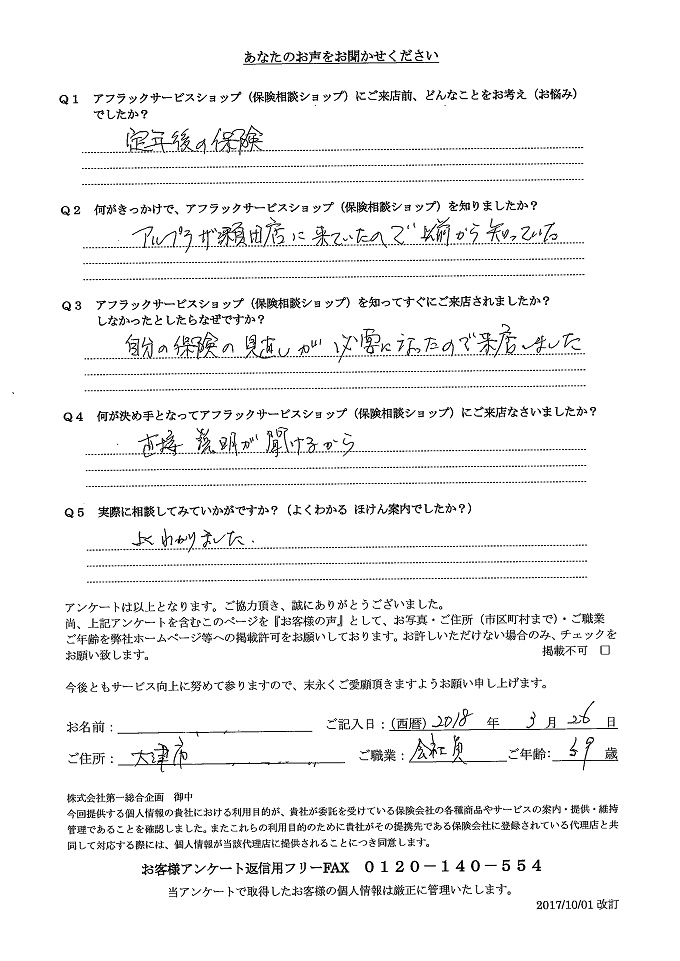 あなたのお声をお聞かせください
Q1 アフラックサービスショップ（保険相談ショップ）にご来店前、どんなことをお考え（お悩み）
でしたか？
定年後の保険
Q2 何がきっかけで、アフラックサービスショップ（保険相談ショップ）を知りましたか？
アルプラザ瀬田店に来ていたので以前から知っていた
Q3 アフラックサービスショップ（保険相談ショップ）を知ってすぐにご来店されましたか？
しなかったとしたらなぜですか？
自分の保険の見直しが必要になったので来店しました
Q4 何が決め手となってアフラックサービスショップ（保険相談ショップ）にご来店なさいましたか？
直接説明が聞けるから
Q5 実際に相談してみていかがですか？（よくわかる ほけん案内でしたか？）
よくわかりました．
アンケートは以上となります。ご協力頂き、誠にありがとうございました。
尚、上記アンケートを含むこのページを『お客様の声』として、お写真・ご住所（市区町村まで）・ご職業
ご年齢を弊社ホームページ等への掲載許可をお願いしております。お許しいただけない場合のみ、チェックを
お願い致します。 掲載不可 □
今後ともサービス向上に努めて参りますので、末永くご愛顧頂きますようお願い申し上げます。
お名前： ご記入日：（西暦） 2018 年 3 月 26 日
ご住所： 大津市 ご職業： 会社員 ご年齢： 59 歳
株式会社第一総合企画 御中
今回提供する個人情報の貴社における利用目的が、貴社が委託を受けている保険会社の各種商品やサービスの案内・提供・維持
管理であることを確認しました。またこれらの利用目的のために貴社がその提携先である保険会社に登録されている代理店と共
同して対応する際には、個人情報が当該代理店に提供されることにつき同意します。
お客様アンケート返信用フリーFAX 0120－140－554
当アンケートで取得したお客様の個人情報は厳正に管理いたします。
2017/10/01 改訂